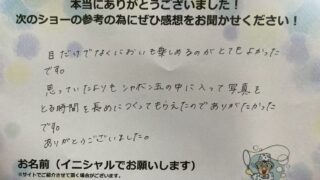 本当にありがとうございました！
次のショーの参考の為にぜひ感想をお聞かせください！
目だけでなくにおいも楽しめるのがとてもよかった
です。
思っていたよりもシャボン玉の中に入って写真を
とる時間を長めにつくってもらえたのでありがたかった
です。
ありがとうございました。
お名前（イニシャルでお願いします）
※サイトでご紹介させて頂く場合がございます。